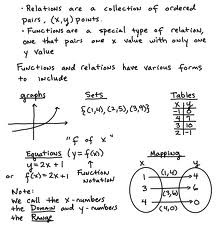 • Relations are a collection of ordered
pairs, (x,y) points.
• Functions are a special type of relation,
one that pairs one x value with only one
y value
Functions and relations have various forms
to include
graphs
Sets
Tables
{(1,4),(2,5),(3,9)}
x y
4 7
3 10
2 -1
"f of x"
Equations (y=f(x))
y=2x+1
or f(x)=2x+1
Function
Notation
Mapping
x
y
1
3
4
(1,4)
(3,6)
(4,0)
4
6
0
Note:
We call the x-numbers
the Domain and y-numbers
the Range